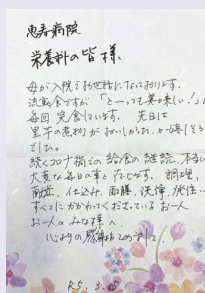 恵寿病院
栄養科の皆様
母が入院でお世話になっております。
流動食ですが「とーっても美味しい！」と
毎回完食しています。先日は
里芋の煮物がおいしかった、と嬉しそう
でした。
続くコロナ禍での給食の継続、本当に
大変な毎日の事と存じます。調理、
献立、仕込み、配膳、洗浄、
すべてにかかわってくださっている お一人
お一人のみな様へ
心よりの感謝をこめまして。
R5.3.